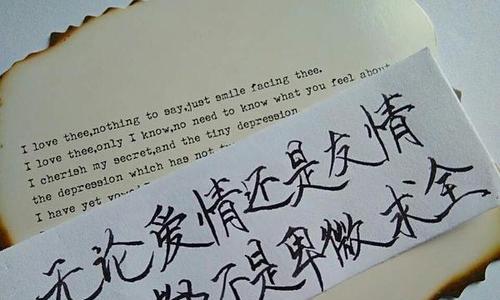 I love thee,nothing to say,just smile facing thee.
I love thee,only I know,no need to know what you feel about
I cherish my secret,and the tiny depression
the depression which has not
I have yet
无论爱情还是友情
不是卑微求全